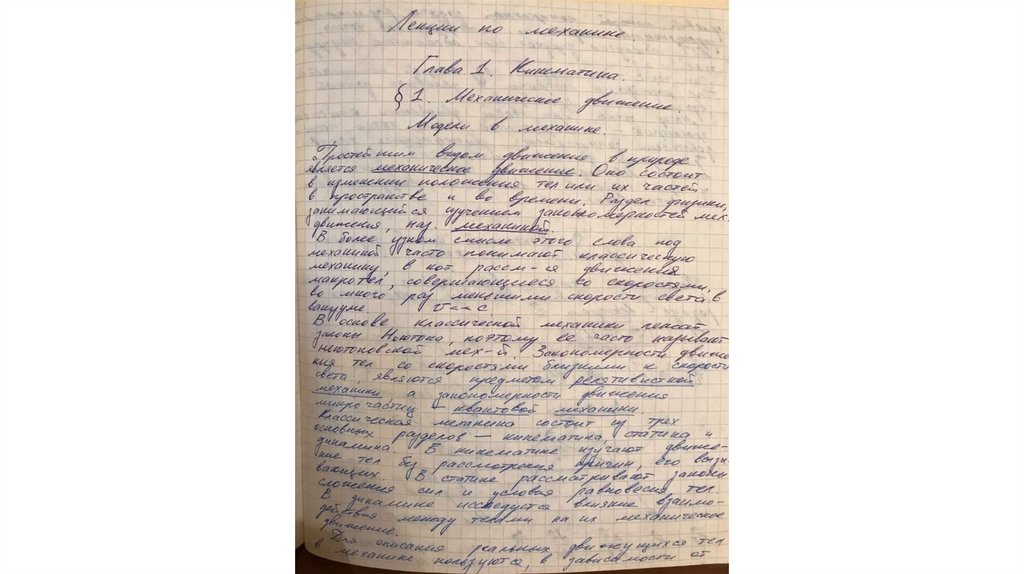 Лекции по механике.
Глава 1. Кинематика.
§ 1. Механическое движение
Модели в механике.
Простейшим видом движение в природе
является механическое движение. Оно состоит
в изменении положения тел или их частей
в пространстве и во времени. Раздел физики,
занимающийся изучением закономерностей мех.
движения, наз. механикой
В более узком смысле этого слова под
механикой часто понимают классическую
механику, в кот. рассм-ся движения
макротел, совершающиеся со скоростями,
во много раз меньшими скорости света в
вакууме v << c
В основе классической механики лежат
законы Ньютона, поэтому ее часто называют
ньютоновской мех-й. Закономерности движе-
ния тел со скоростями близкими к скорости
света, являются предметом релятивистской
механики, а закономерности движения
микрочастиц – квантовой механики
Классическая механика состоит из трех
основных разделов – кинематика, статика и
динамика. В кинематике изучают движе-
ние тел без рассмотрения причин, его вызы-
вающих. В статике рассматривают законы
сложения сил и условия равновесия тел.
В динамике исследуется влияние взаимо-
действия между телами на их механическое
движение.
Для описания реальных движущихся тел
в механике пользуются, в зависимости от